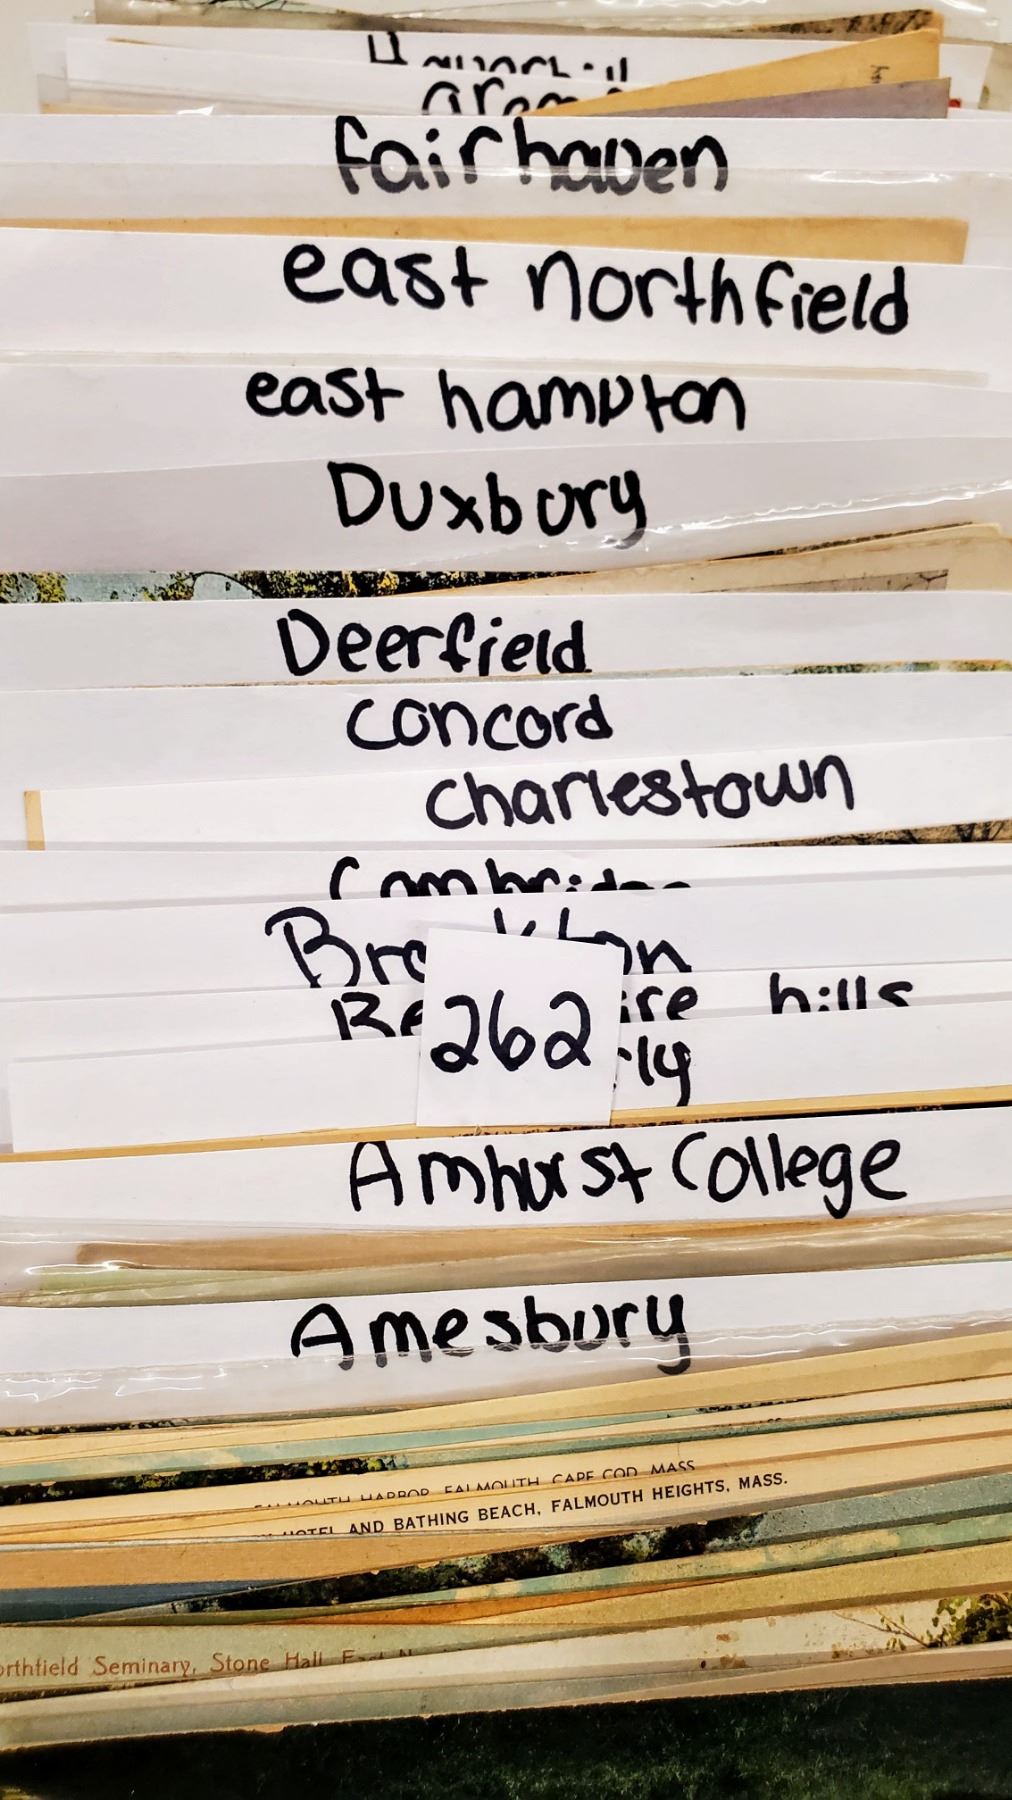 Haverhill
fairhaven
east northfield
east hampton
Duxbury
Deerfield
concord
charlestown
Cambridge
Brockton
hills
262
Amhurst College
Amesbury
FALMOUTH HARBOR, FALMOUTH, CAPE COD, MASS
HOTEL AND BATHING BEACH, FALMOUTH HEIGHTS, MASS.
Seminary, Stone Hall, East